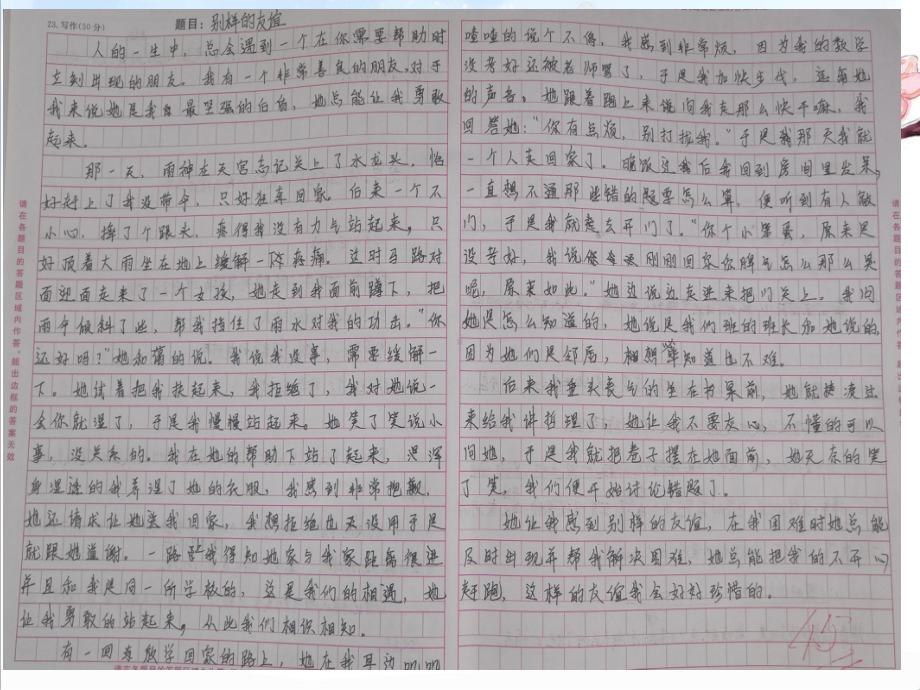 23.写作(50分)
题目：别样的友谊
人的一生中，总会遇到一个在你需要帮助时
立刻出现的朋友。我有一个非常善良的朋友，对于
我来说她是我最坚强的后盾，她总能让我勇敢
起来。
那一天，雨神在天宫忘记关上了水龙头，恰
好赶上了我没带伞，只好狂奔回家。后来一个不
小心，摔了个跟头，疼得我没有力气站起来，只
好顶着大雨坐在地上缓解一阵疼痛。这时马路对
面迎面走来了一个女孩，她走到我面前蹲下，把
雨伞倾斜了些，帮我挡住了雨水对我的功击。“你
还好吗？”她和蔼的说，我说我没事，需要缓解一
下。她试着把我扶起来，我拒绝了，我对她说一
会你就湿了，于是我慢慢站起来。她笑了笑说小
事，没关系的。我在她的帮助下站了起来，浑浑
身湿透的我弄湿了她的衣服，我感到非常抱歉，
她还请求让她送我回家，我想拒绝也没用于是
就跟她道谢。一路上我得知她家与我家距离很近
并且和我是同一所学校的，这是我们的相遇，她
让我勇敢的站起来，从此我们相依相知。
有一回在放学回家的路上，她在我耳边叽叽
喳喳的说个不停，我感到非常烦，因为我的数学
没考好还被老师骂了，于是我加快步伐，远离她
的声音。她跟着跑上来说问我走那么快干嘛，我
回答她：“你有点烦，别打扰我。”于是我那天我就
一个人走回家了。晚饭过我后我回到房间里发呆，
一直想不通那些错的题要怎么算，便听到有人敲
门，于是我就走去开门了。“你个小笨蛋，原来是
没考好，我说你刚刚回家你脾气怎么那么臭
呢，原来如此。”她边说边走进来把门关上。我问
她是怎么知道的，她说是我们班的班长和她说的，
因为她们是邻居，相想知道也不难。
后来我垂头丧气的坐在书桌前，她就凑过
来给我讲哲理了，她让我不要灰心，不懂的可以
问她，于是我就把卷子摆在她面前，她无奈的笑
了笑，我们便开始讨论错题了。
她让我感到别样的友谊，在我困难时她总能
及时出现并帮我解决困难，她总能把我的不开心
赶跑，这样的友谊我会好好珍惜的。
45
请在各题目的答题区域内作答，超出边框的答案无效